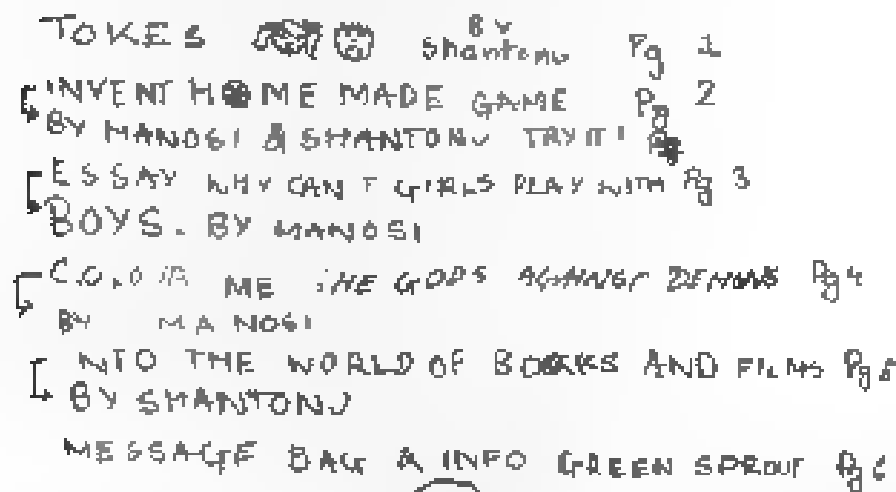 JOKES BY Shantonu Pg 1
INVENT HOME MADE GAME Pg 2
BY MANOSI & SHANTONU TRY IT!
ESSAY WHY CAN T GIRLS PLAY WITH Pg 3
BOYS. BY MANOSI
COLOUR ME THE GODS AGAINST DEMONS Pg 4
BY MANOSI
INTO THE WORLD OF BOOKS AND FILMS Pg 5
BY SHANTONU
MESSAGE BAG & INFO GREEN SPROUT Pg 6